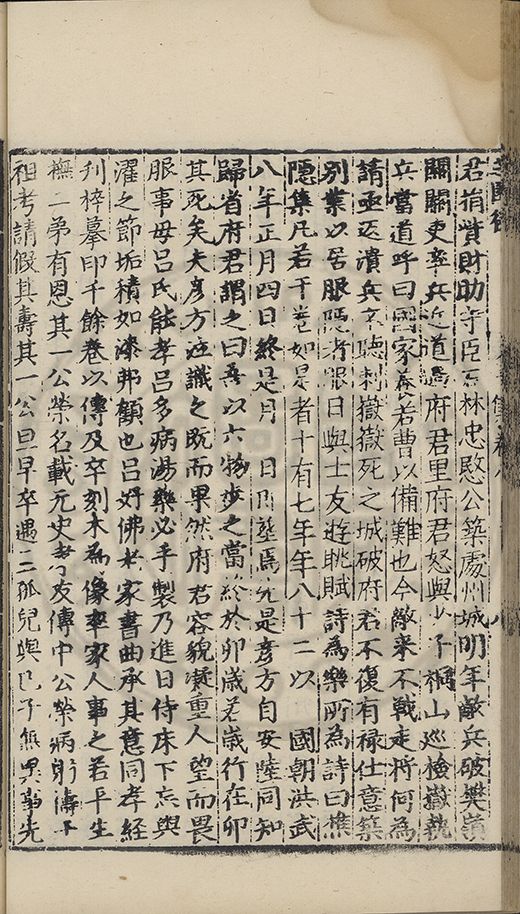 君捐貲財助守臣石林忠愍公築處州城明年敵兵破樊嶺
關關吏率兵近道過府君里府君怒與少子桐山巡檢嶽執
兵當道呼曰國家養若曹以備難也今敵来不戰走將何為
請亟還潰兵不聽刺嶽嶽死之城破府君不復有禄仕意築
别業以居服隱者服日與士友遊眺賦詩為樂所為詩曰樵
隱集凡若干卷如是者十有七年年八十二以國朝洪武
八年正月四日終是月日則塟焉先是彦方自安陸同知
歸省府君謂之曰吾以六物步之當終於卯歲若歲行在卯
其死矣夫彦方泣識之既而果然府君容貌凝重人望而畏
服事母吕氏能孝吕多病湯藥必手製乃進日侍床下忘與
濯之節垢積如漆弗顧也吕好佛老家書曲承其意同孝經
刋梓摹印千餘卷以傳及卒刻木為像率家人事之若平生
撫二弟有恩其一公榮名載元史孝友傳中公榮病躬禱于
祖考請假其壽其一公旦早卒遇二孤兒與己子無異葬先